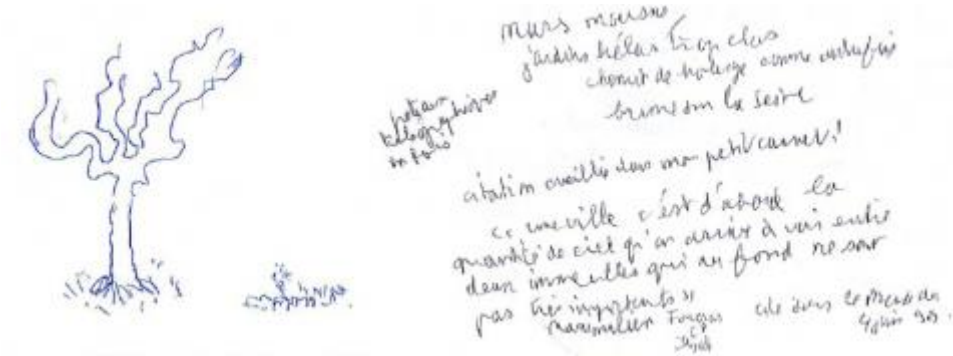 murs
jardins hélas trop clos
chemin de halage comme autrefois
brume sur la Seine
poteaux
télégraphiques
en bois
citation cueillie dans mon petit carnet !
« une ville c'est d'abord la
quantité de ciel qu'on arrive à voir entre
deux immeubles qui au fond ne sont
pas très importants »
cité dans le Monde du